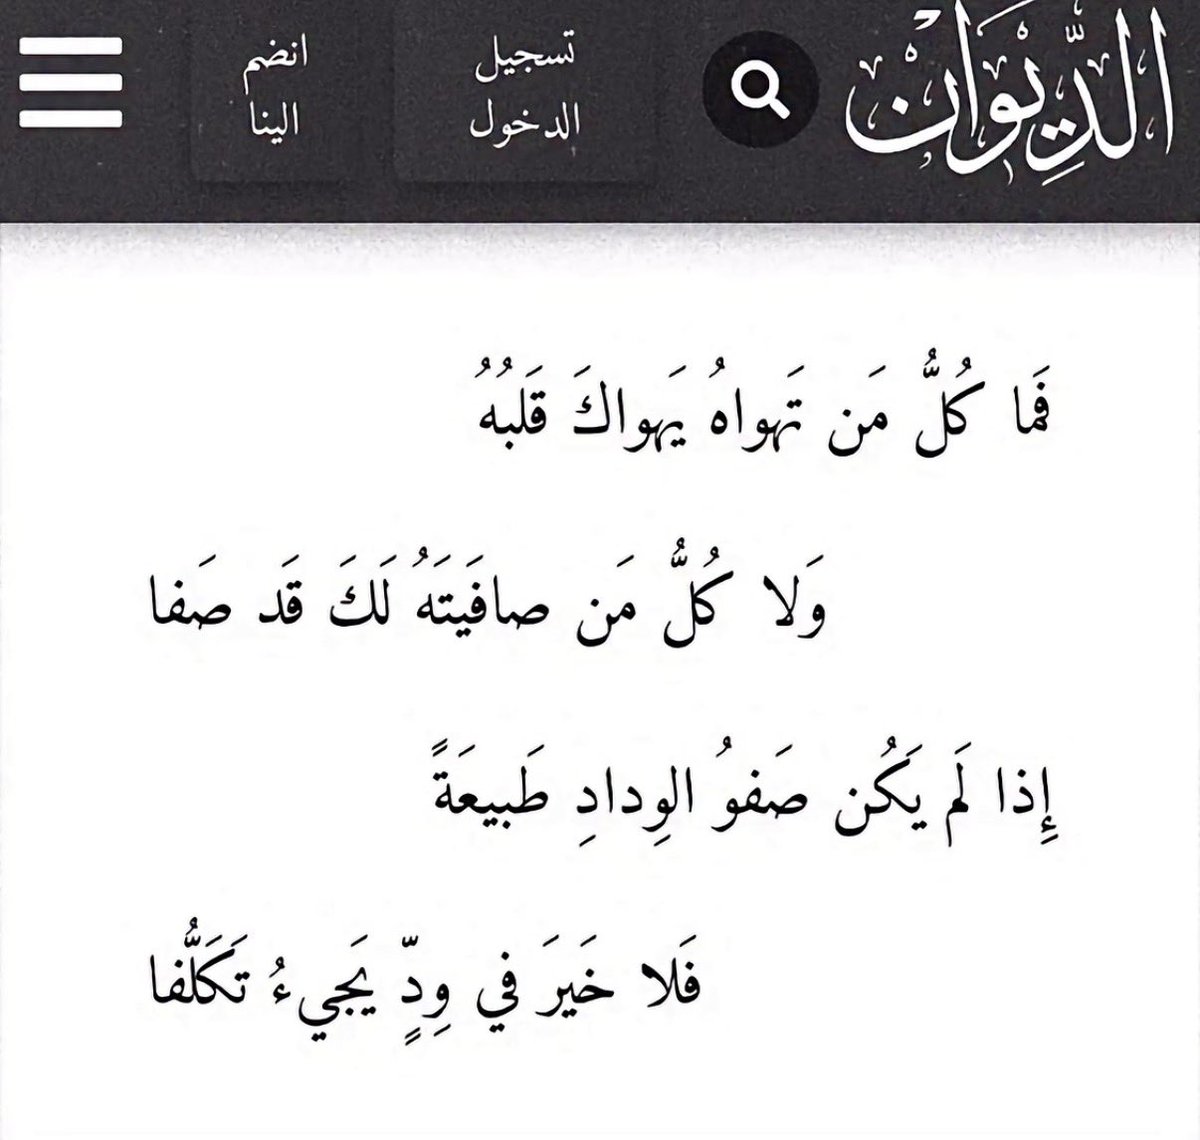 الدِّيوَانْ
تسجيل
الدخول
انضم
الينا
فَما كُلُّ مَن تَهواهُ يَهواكَ قَلبُهُ
وَلا كُلُّ مَن صافَيتَهُ لَكَ قَد صَفا
إِذا لَم يَكُن صَفوُ الوِدادِ طَبيعَةً
فَلا خَيرَ في وِدٍّ يَجيءُ تَكَلُّفا